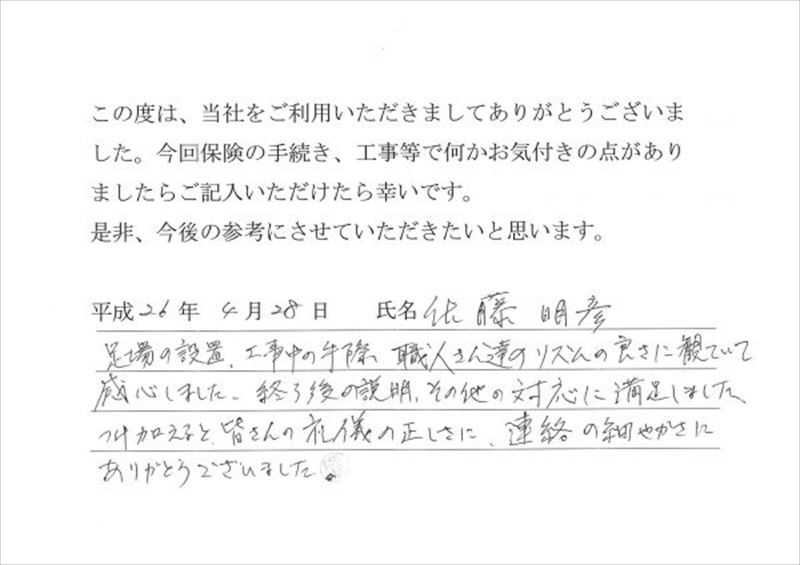 この度は、当社をご利用いただきましてありがとうございま
した。今回保険の手続き、工事等で何かお気付きの点があり
ましたらご記入いただけたら幸いです。
是非、今後の参考にさせていただきたいと思います。
平成26年 4月28日 氏名 佐藤明彦
足場の設置、工事中の手際、職人さん達のリズムの良さに観ていて
感心しました。終了後の説明、その他の対応に満足しました、
つけ加えると、皆さんの礼儀の正しさに、連絡の細やかさに
ありがとうございました。